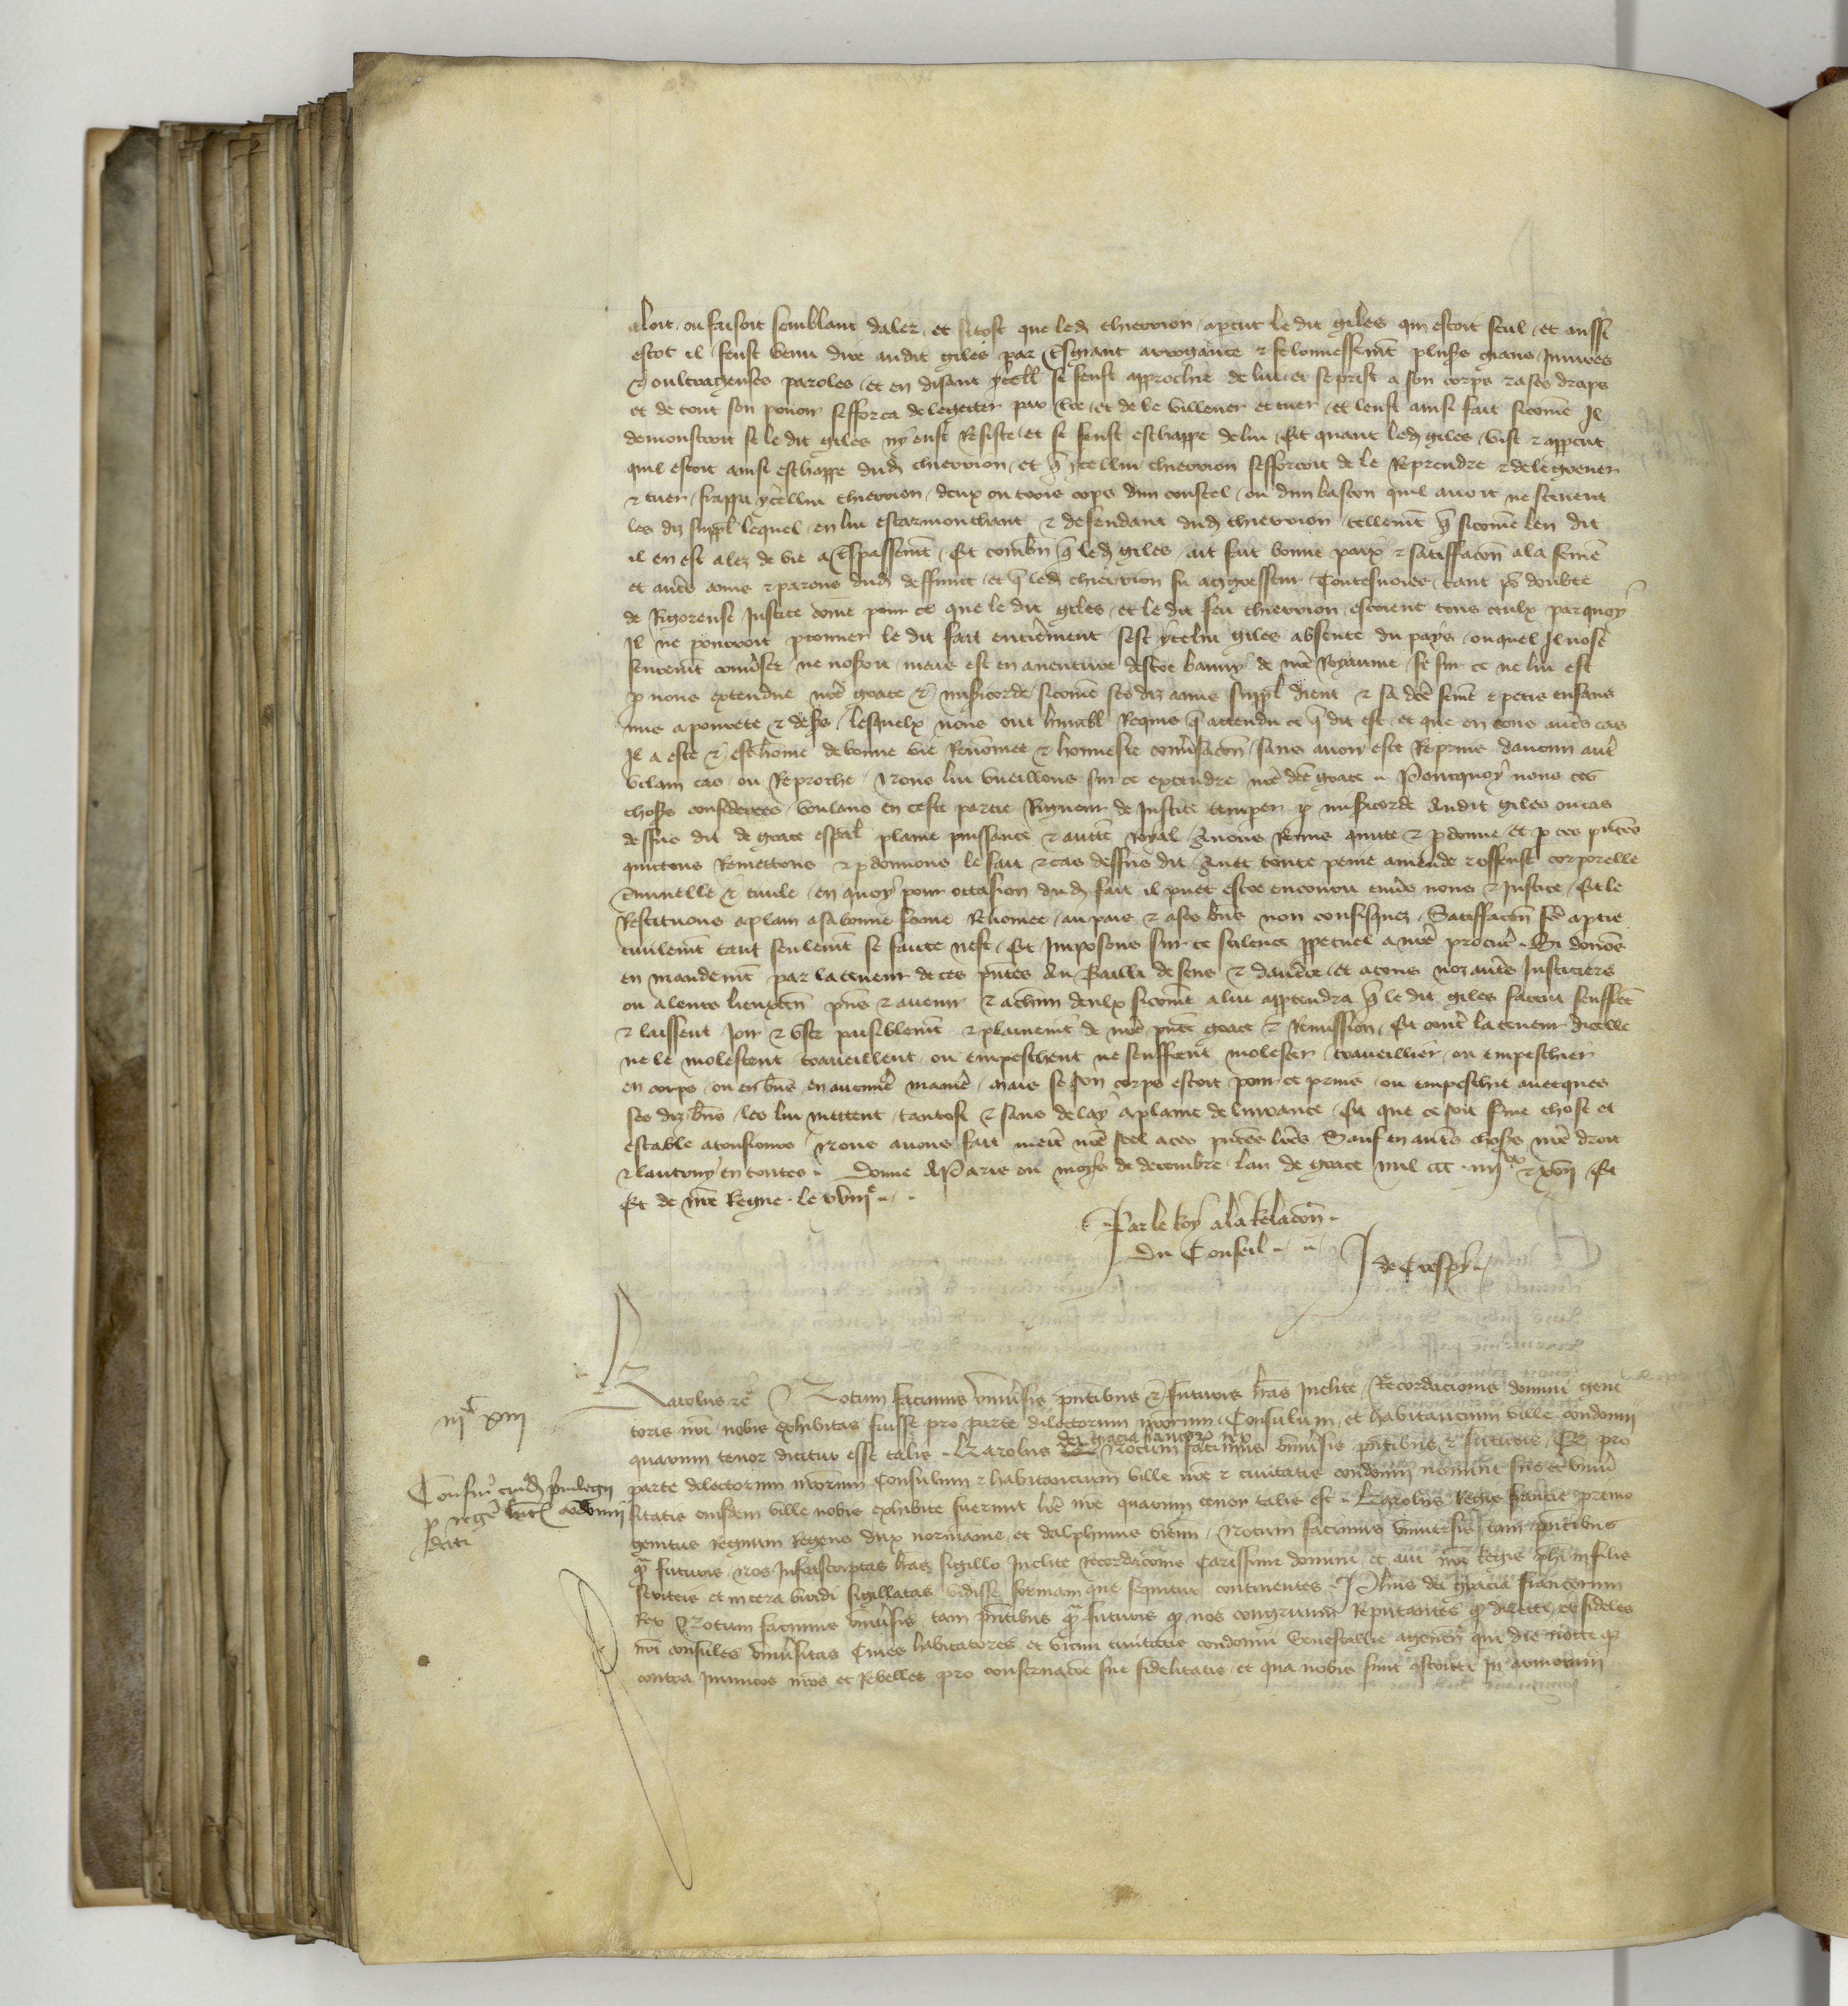 aloit, ou faisoit semblant daler, et si tost que led chievrion apcut le dit giles qui estoit seul, et aussi
estoit il, seust venu dire audit giles par tsgrant arrogance & felonnessemt pluss grans Iniures
& oultrageuses paroles, et en disant ycell se feust approchie de lui et se prist a son corps & a ses draps
et de tout son pouoir sefforca de le getter par tre, et de le villener et tuer, et leust ainsi fait sicome Il
demonstroit se le dit giles ny eust Resiste, et se feust eschappe de lui, Et quant led giles vist & appcut
quil estoit ainsi eschappe dud chievrion, et q ycellui chievrion sefforcoit de le Reprendre & de le grever
& tuer, frappa ycellui chievrion deux ou trois cops dun coustel, ou dun baston quil avoit ne scevent
les diz suppl lequel, en lui escarmouchant & defendant dud chievrion, tellemt q sicome len dit
il en est alez de vie a tspassemt, Et combn q led giles, ait fait bonne paix & satisfacon a la feme
et aues amis & parens dud deffunct, et q led chievrion fu aggresseur, Toutesuoies, tant ps doubte
de Rigoreuse Justice come pour ce que le dit giles, et le dit feu chievrion, estoient tous seulx parquoy
Il ne pourroit prouuer le dit fait entierement, sest ycelui giles absente du pays, ouquel Il nose
seuremt conuser, ne nosoit, mais est en auenture destre banny de nre Royaume, se sur ce ne lui est
p nous extendue nre grace & misicorde, sicome ses diz amis suppl dient & sa dce feme & petis enfans
mis a pourete & desers, lesquelx nous ont humbll Requis q attendu ce q dit est, et que en tous aues cas
Il a este & est home de bonne vie Renomee & honneste conusacon, sans auoir este Reprins daucun aut
vilain cas, ou Reproche, Nous lui vueillons sur ce extendre nre dce grace. Pourquoy nous ces
choses considerees, voulans en ceste partie Rigueur de Justice temper p misicorde Audit giles ou cas
dessus dit de grace espal plaine puissance & aucte Royal Auons Remis quitte & pdonne, et p ces pntes
quittons Remettons & pdonnons le fait & cas dessus dit, Auec toute peine amende & offense corporelle
criminelle & ciuile, en quoy pour occasion dud fait il puet estre encouru enuers nous & Justice, Et le
Restituons a plain a sa bonne fame Renomee, au pais & a ses bns non confisquez, Satisfacon fce a ptie
ciuilemt tant seulemt se faicte nest, Et Imposons sur ce scilence ppetuel a nre procur. Si donons
en mandemt par la teneur de ces pntes Au Bailli de sens & dauxre, et a tous noz aues Justiciers
ou a leurs lieuxten pns & auenir & a chun deulx sicome a lui apptendra q le dit giles facent seuffret
& laissent Joir & vser paisiblemt & plainemt de nre pnte grace & Remission, Et contre la teneur dicelle
ne le molestent, traueillent, ou empeschent ne seuffrent molester, traueillier, ou empeschier
en corps, ou en bns, en aucune maniere, mais se son corps estoit pour ce prins, ou empeschie auecques
ses diz bns, les lui mettent, tantost & sans delay a plaine deliurance, Et que ce soit ferme chose et
estable a tousiours, Nous auons fait mettre nre seel a ces pntes lres, Sauf en aues choses nre droit
& lautruy en toutes. Donne A Paris ou moys de decembre lan de grace mil ccc iiiixx & xvii, Et
Et de nre Regne le xviiie.
Par le Roy a la Relacon
Du Conseil.
J de Crespy
Karolus &c Notum facimus vniusis pntibus & futuris lras Inclite Recordacionis domini geni
toris nri nobis exhibitas fuisse pro parte dilectorum nrorum Consulum, et habitancium ville condomii
dei gracia francorum rex
quarum tenor dicitur esse talis. Karolus Notum facimus vniusis pntibus & futuris, Et pro
parte dilectorum nrorum Consulum & habitancium ville nre & ciuitatis condomii nomine suo et vniu
sitatis eiusdem ville nobis exhibite fuerunt lre nre quarum tenor talis est. Karolus Regis francie primo
genitus Regnum Regens dux normanie, et dalphinus vien. Notum facimus vniuersis, tam pntibus
q futuris, Nos Infrascriptas lras sigillo Inclite Recordacois Carissimi domini, et aui nri Regis phi in filis
sericeis et in cera viridi sigillatas vidisse formam que sequitur continentes. Phus dei gracia francorum
Rex Notum facimus vniusis, tam pntibus q futuris q nos congruum Reputantes q dilecti, et fideles
nri consules vniusitas Ciues habitatores, et vicini ciuitatis condomii Senescallie agenen qui die nocte q
contra Inimicos nros et Rebelles pro conseruacoe sue fidelitatis, et qua nobis sunt astricti In armorum
iiic xiii
Confir cuiusd priuilegii
p regem hntibus condomii
dati